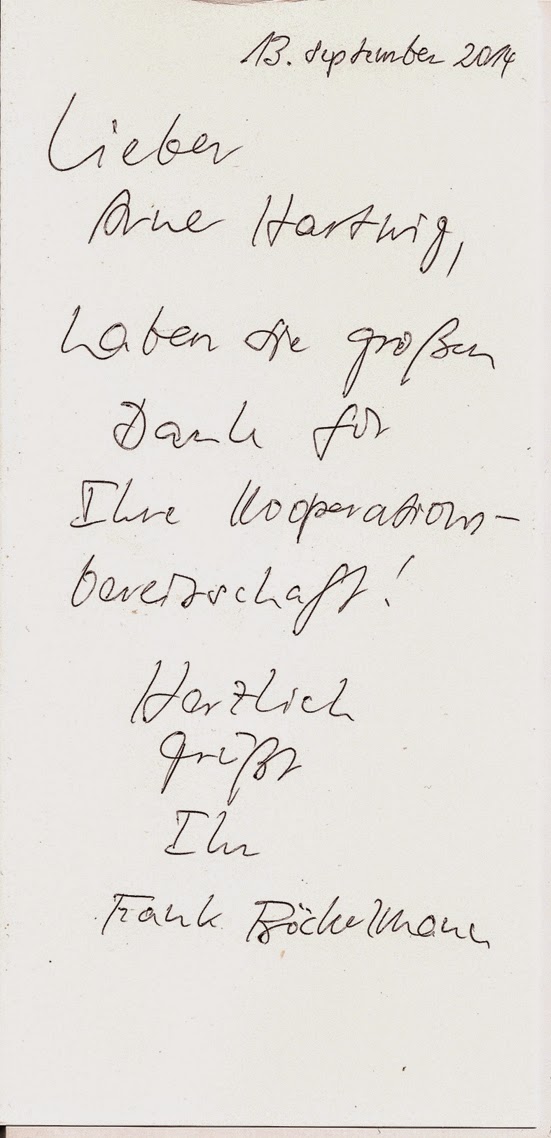 13. September 2014
Lieber
Arne Hartwig,
haben Sie großen
Dank für
Ihre Kooperations-
bereitschaft!
Herzlich
grüßt
Ihr
Frank Böckelmann